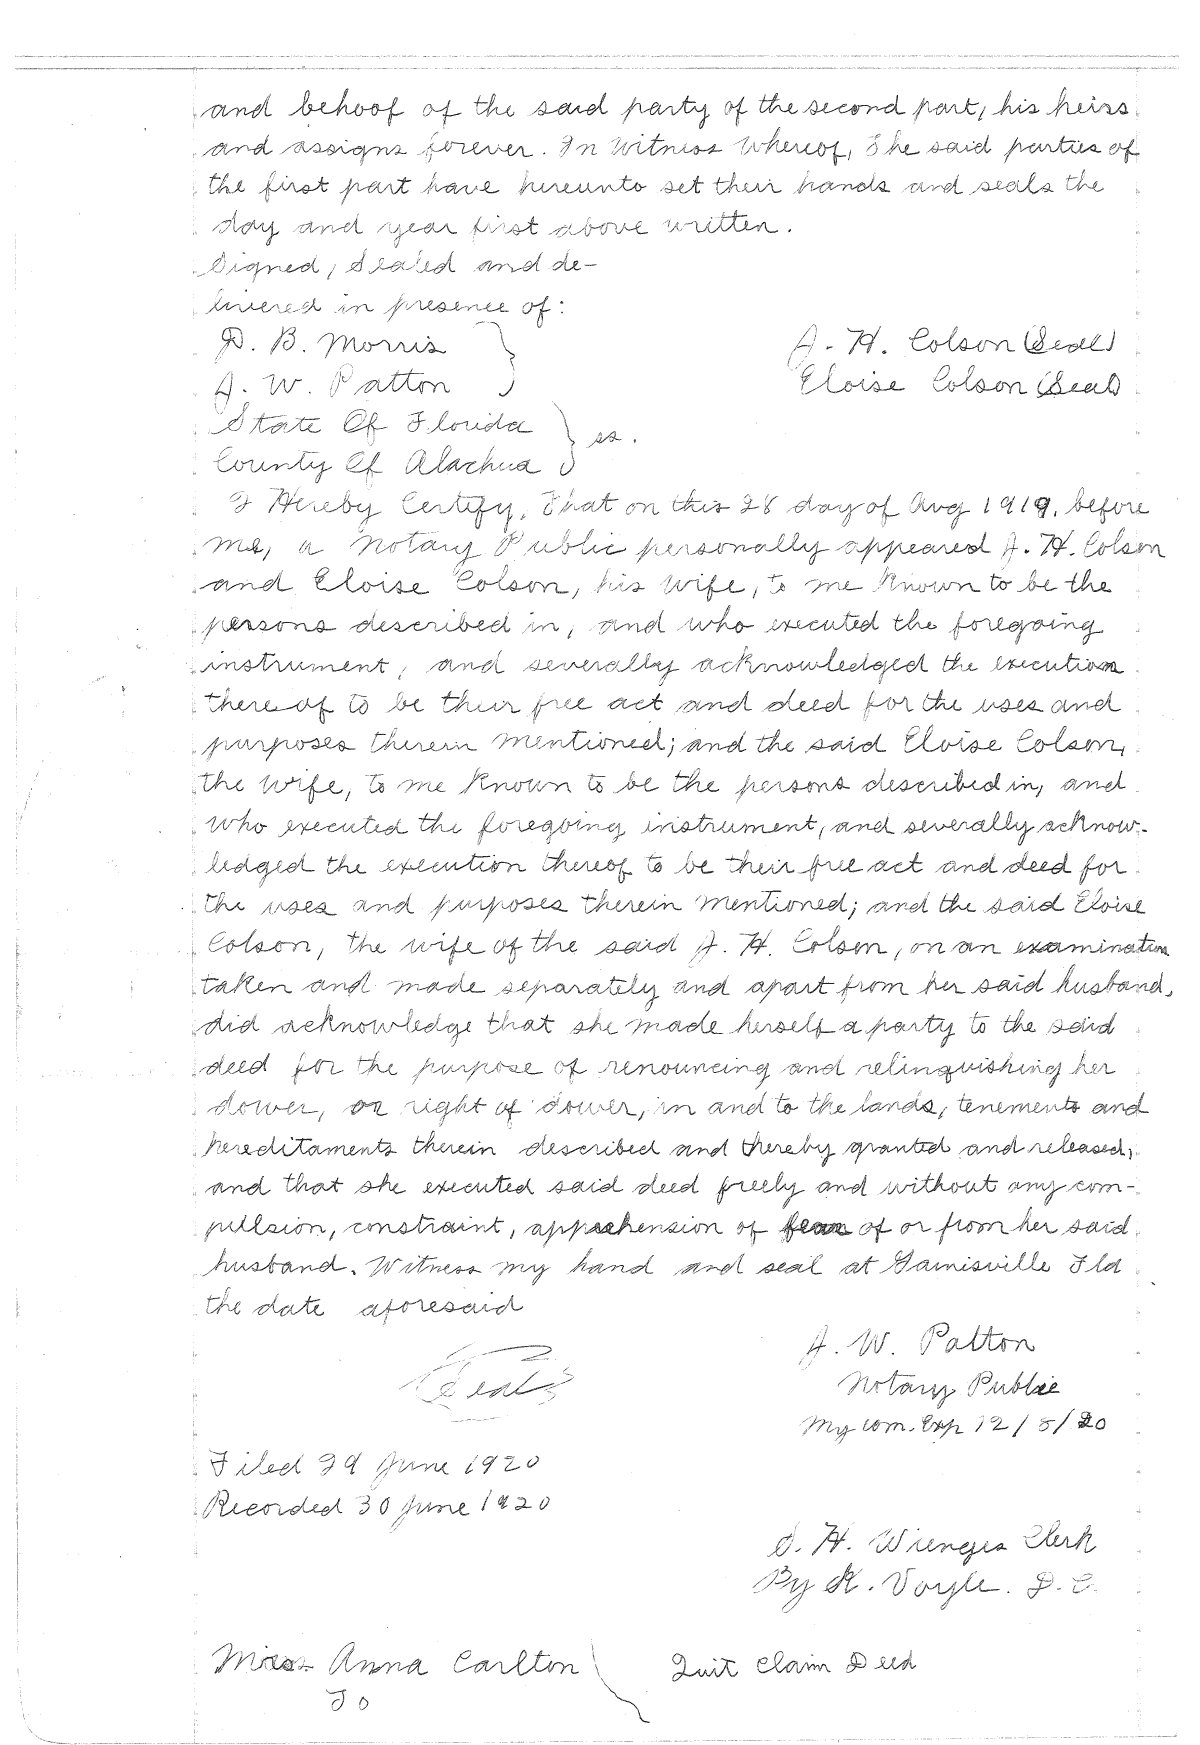 and behoof of the said party of the second part, his heirs
and assigns forever. In Witness Whereof, The said parties of
the first part have hereunto set their hands and seals the
day and year first above written.
Signed, Sealed and de-
livered in presence of:
D. B. Morris
J. W. Patton
J. H. Colson (Seal)
Eloise Colson (Seal)
State Of Florida
County Of Alachua
ss.
I Hereby Certify, That on this 28 day of Aug 1919, before
me, a Notary Public personally appeared J. H. Colson
and Eloise Colson, his wife, to me known to be the
persons described in, and who executed the foregoing
instrument, and severally acknowledged the execution
there of to be their free act and deed for the uses and
purposes therein mentioned; and the said Eloise Colson,
the wife, to me known to be the persons described in, and
who executed the foregoing instrument, and severally acknow-
ledged the execution thereof to be their free act and deed for
the uses and purposes therein mentioned; and the said Eloise
Colson, the wife of the said J. H. Colson, on an examination
taken and made separately and apart from her said husband,
did acknowledge that she made herself a party to the said
deed for the purpose of renouncing and relinquishing her
dower, or right of dower, in and to the lands, tenements and
hereditaments therein described and thereby granted and released,
and that she executed said deed freely and without any com-
pulsion, constraint, apprehension of fear of or from her said
husband. Witness my hand and seal at Gainisville Fla
the date aforesaid
J. W. Patton
Seal
Notary Public
My com. Exp 12/5/20
Filed 29 June 1920
Recorded 30 June 1920
S. H. Wienges Clerk
By K. Voyle. D. C.
Miss Anna Carlton
Quit Claim Deed
To